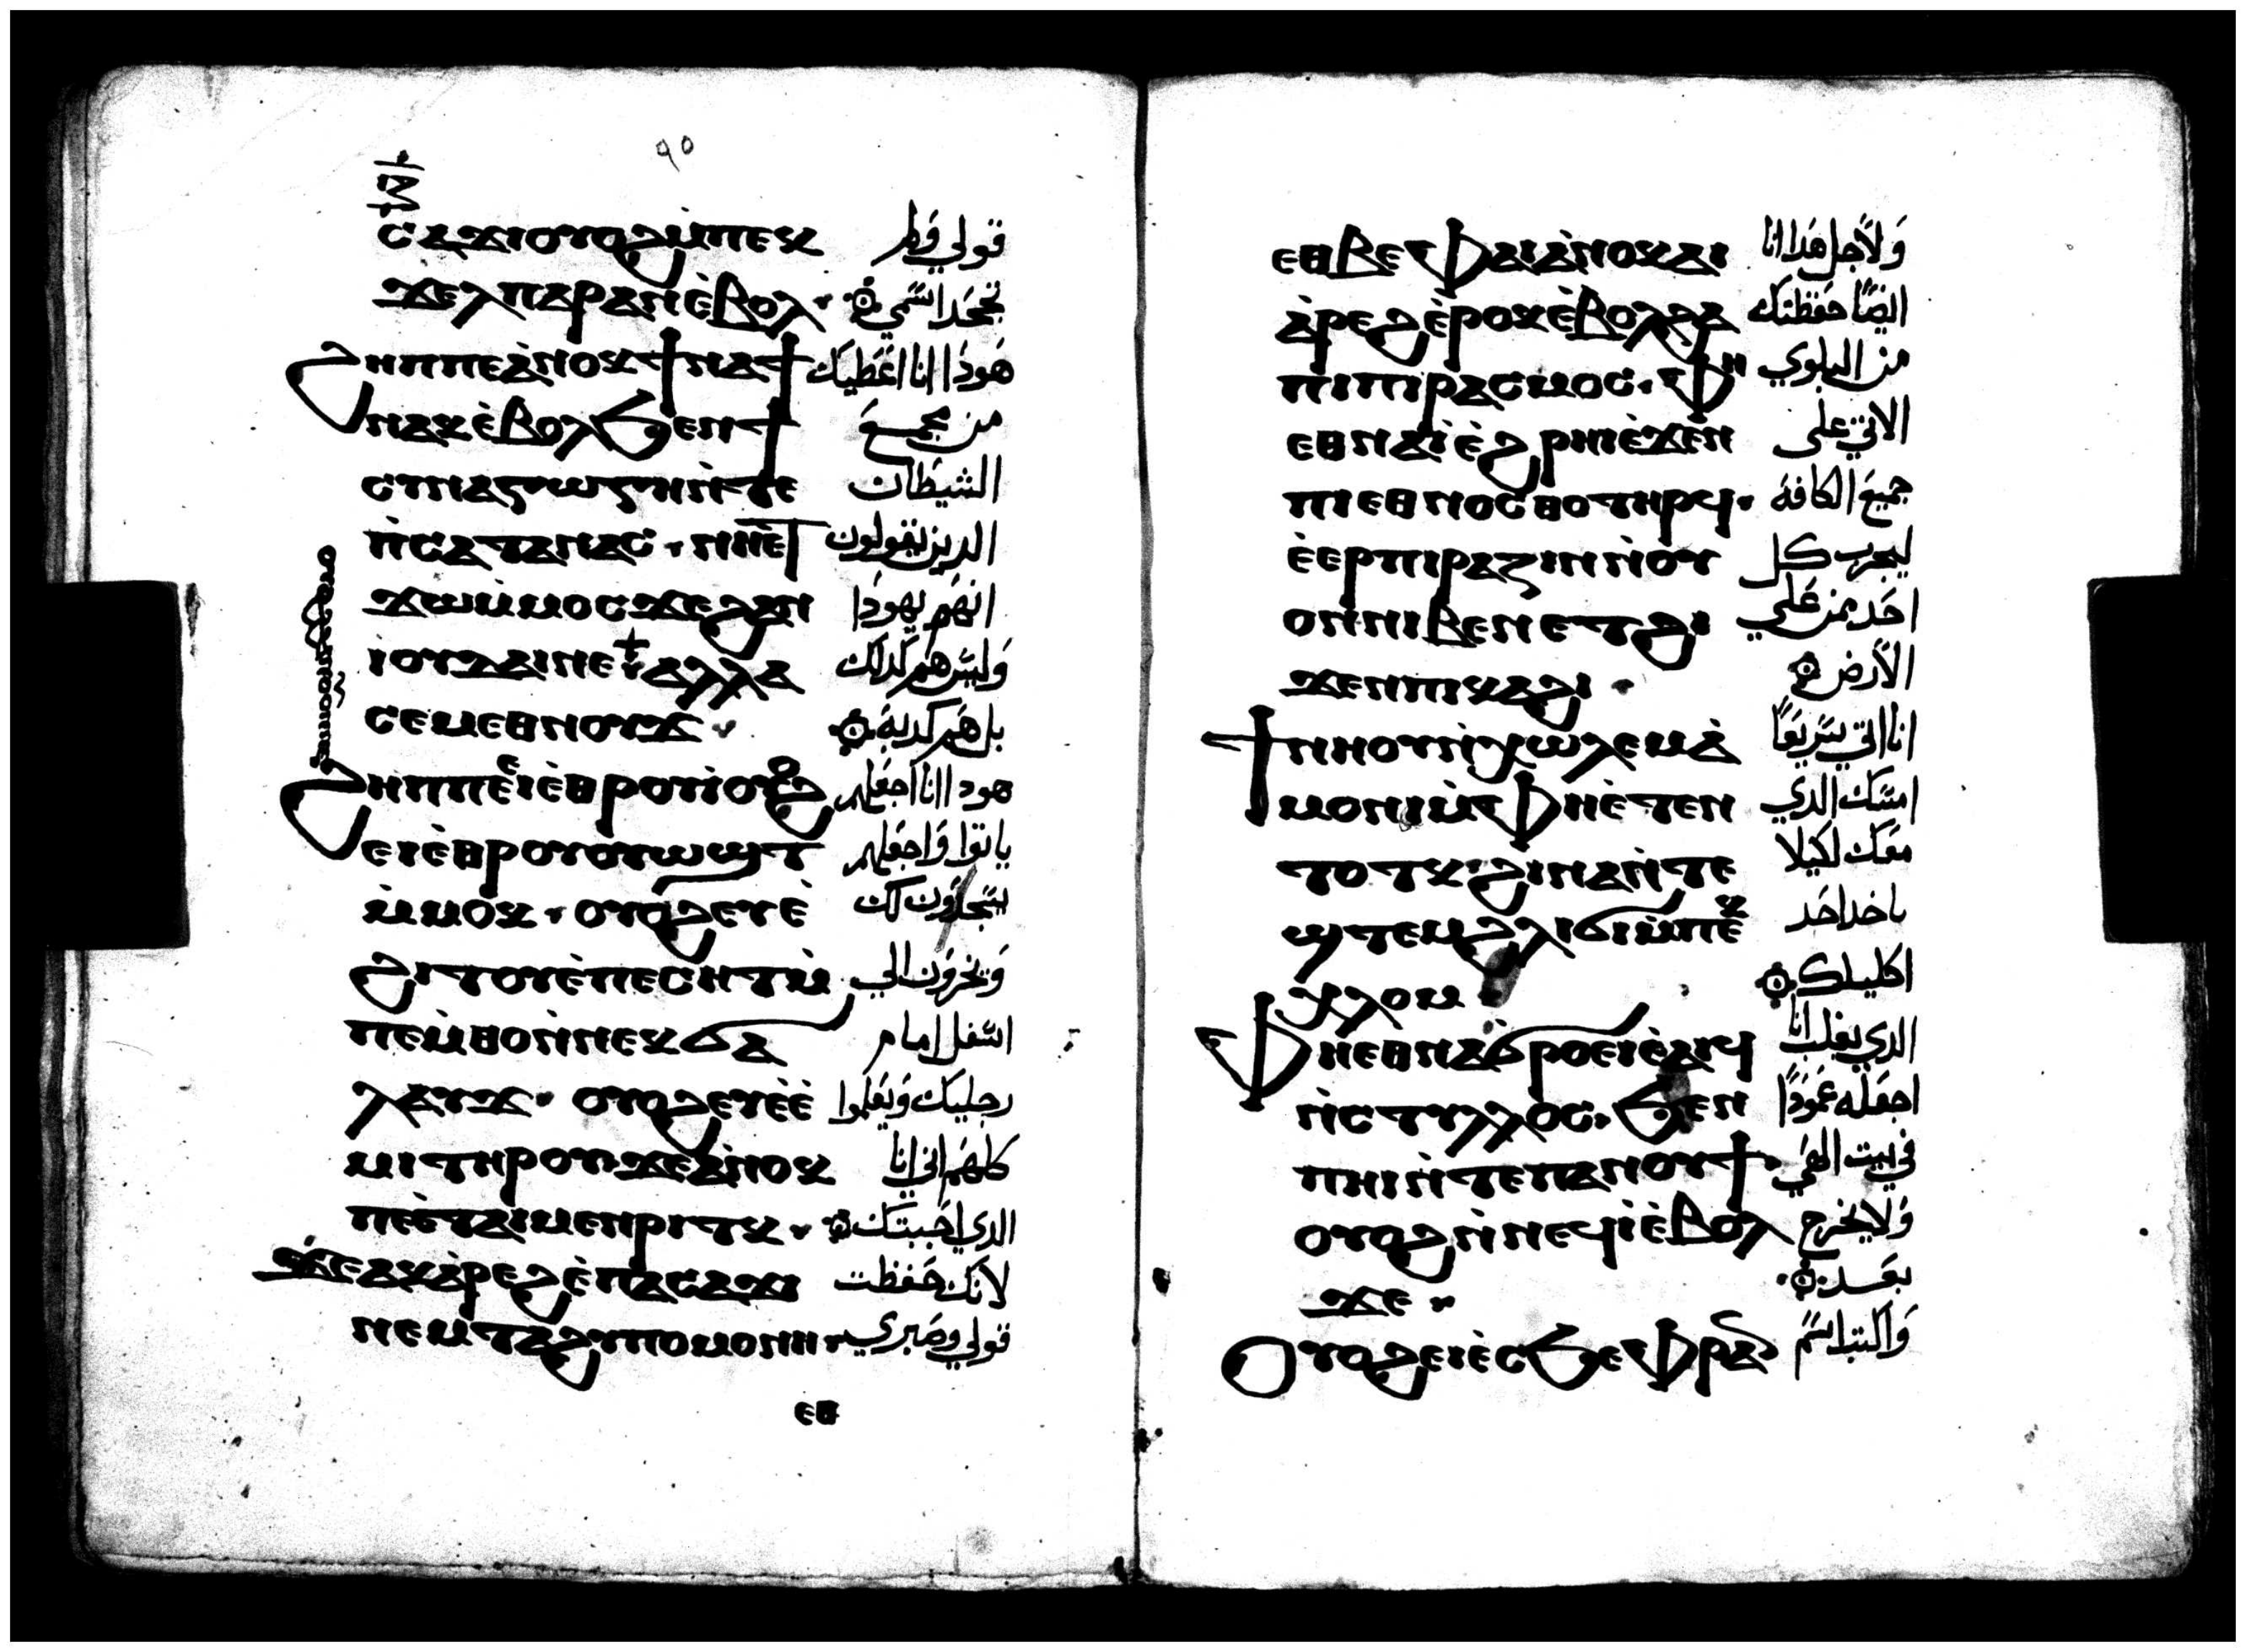 ٩٥
ⲥⲁϫⲓⲟⲩⲟϩⲙ̀ⲡⲉⲕ قولي ولم
ϫⲉⲗⲡⲁⲣⲁⲛⲉ̀ⲃⲟⲗ· تجحد اسمي
ϩⲏⲡⲡⲉⲁ̀ⲛⲟⲕϯⲛⲁϯ هَودا انا اعَطيك
ⲛⲁⲕⲉ̀ⲃⲟⲗϧⲉⲛϯ من مجمع
ⲥⲩⲛⲁⲅⲱⲅⲏⲛ̀ⲧⲉ الشيطان
ⲛ̀ⲥⲁⲧⲁⲛⲁⲥ· ⲛⲏⲉ̀ⲧ الدين يقولون
ϫⲱⲙ̀ⲙⲟⲥϫⲉϩⲁⲛ انهَم يهَودَا
ⲓⲟⲩⲇⲁⲓⲛⲉ· ⲁⲗⲗⲁ وَليسَ هَم كدلك
ⲥⲉⲙⲉⲑⲛⲟⲩϫ· بل هَم كدبة
ϩⲏⲡⲡⲉⲉⲓⲉ̀ⲑⲣⲟⲩⲓ̀ⲟⲩⲟϩ هودا انا اجعَلهم
ⲉⲓⲉ̀ⲑⲣⲟⲩⲟⲩⲱϣⲧ ياتوا وَاجعَلهم
ⲙ̀ⲙⲟⲕ· ⲟⲩⲟϩⲉⲩⲉ̀ يسَجدَون لك
ϩⲓⲧⲟⲩⲉ̀ⲡⲉⲥⲏⲧⲙ̀ وَيخرَون الي
ⲡⲉⲙ̀ⲑⲟⲛ̀ⲛⲉⲕϭⲁ اسَفل امام
ⲗⲁⲩϫ· ⲟⲩⲟϩⲉⲩⲉ̀ⲉ̀ رجليك وَيعَلموا
ⲙⲓⲧⲏⲣⲟⲩ ϫⲉⲁ̀ⲛⲟⲕ كلهَم اني انا
ⲡⲉⲧⲁⲓⲙⲉⲛⲣⲓⲧⲕ· الدي احَببتك
ϫⲉⲁⲕⲁ̀ⲣⲉϩⲉ̀ⲡⲁⲥⲁϫⲓ لانك حَفظت
ⲛⲉⲙⲧⲁϩⲩⲡⲟⲙⲟⲛⲏ· قولي وصَبري
ⲉⲑ
ⲉⲑⲃⲉⲫⲁⲓⲁ̀ⲛⲟⲕϩⲱ وَلاجل هَدا انا
ⲁ̀ⲣⲉϩⲉ̀ⲣⲟⲕⲉ̀ⲃⲟⲗϩⲁ ايضًا حَفظتك
ⲡⲓⲡⲓⲣⲁⲥⲙⲟⲥ· ⲫⲏ من البلوي
ⲉⲑⲛⲁⲓ̀ⲉ̀ϩⲣⲏⲓⲉ̀ϫⲉⲛ الاتي على
ⲡⲓⲉⲑⲛⲟⲥⲑⲟⲧⲏⲣϥ· جميعَ الكافة
ⲉ̀ⲉⲣⲡⲓⲣⲁⲍⲓⲛⲛ̀ⲟⲩ ليجرب كل
ⲟⲛⲛⲓⲃⲉⲛⲉⲧϩⲓ احَد من عَلي
ϫⲉⲛⲡⲓⲕⲁϩⲓ· الاَرض
ϯⲛⲏⲟⲩⲛ̀ⲭⲱⲗⲉⲙⲁ̀ انا اتي سَريعَا
ⲙⲟⲛⲓⲙ̀ⲫⲏⲉ̀ⲧⲉⲛ امسَك الدي
ⲧⲟⲧⲕϩⲓⲛⲁⲛ̀ⲧⲉ معَك لكيلا
ϣⲧⲉⲙϩⲗⲓϭⲓⲙ̀ⲡⲉⲕ ياخد احَد
ⲭⲗⲟⲙ اكليلك
ⲫⲏⲉⲑⲛⲁϭⲣⲟⲉⲓⲉ̀ⲁⲓϥ الدي يغلب انا
ⲛ̀ⲥⲧⲩⲗⲗⲟⲥ· ϧⲉⲛ اجعَله عَموَدًا
ⲡⲏⲓⲛ̀ⲧⲉⲡⲁⲛⲟⲩϯ· في بيت الهَي
ⲟⲩⲟϩⲛ̀ⲛⲉϥⲓ̀ⲉ̀ⲃⲟⲗ وَلا يخرج
ϫⲉ· بعَد
ⲟⲩⲟϩⲉⲓⲉ̀ⲥϧⲉⲫⲣⲁ وَاكتب اسَم